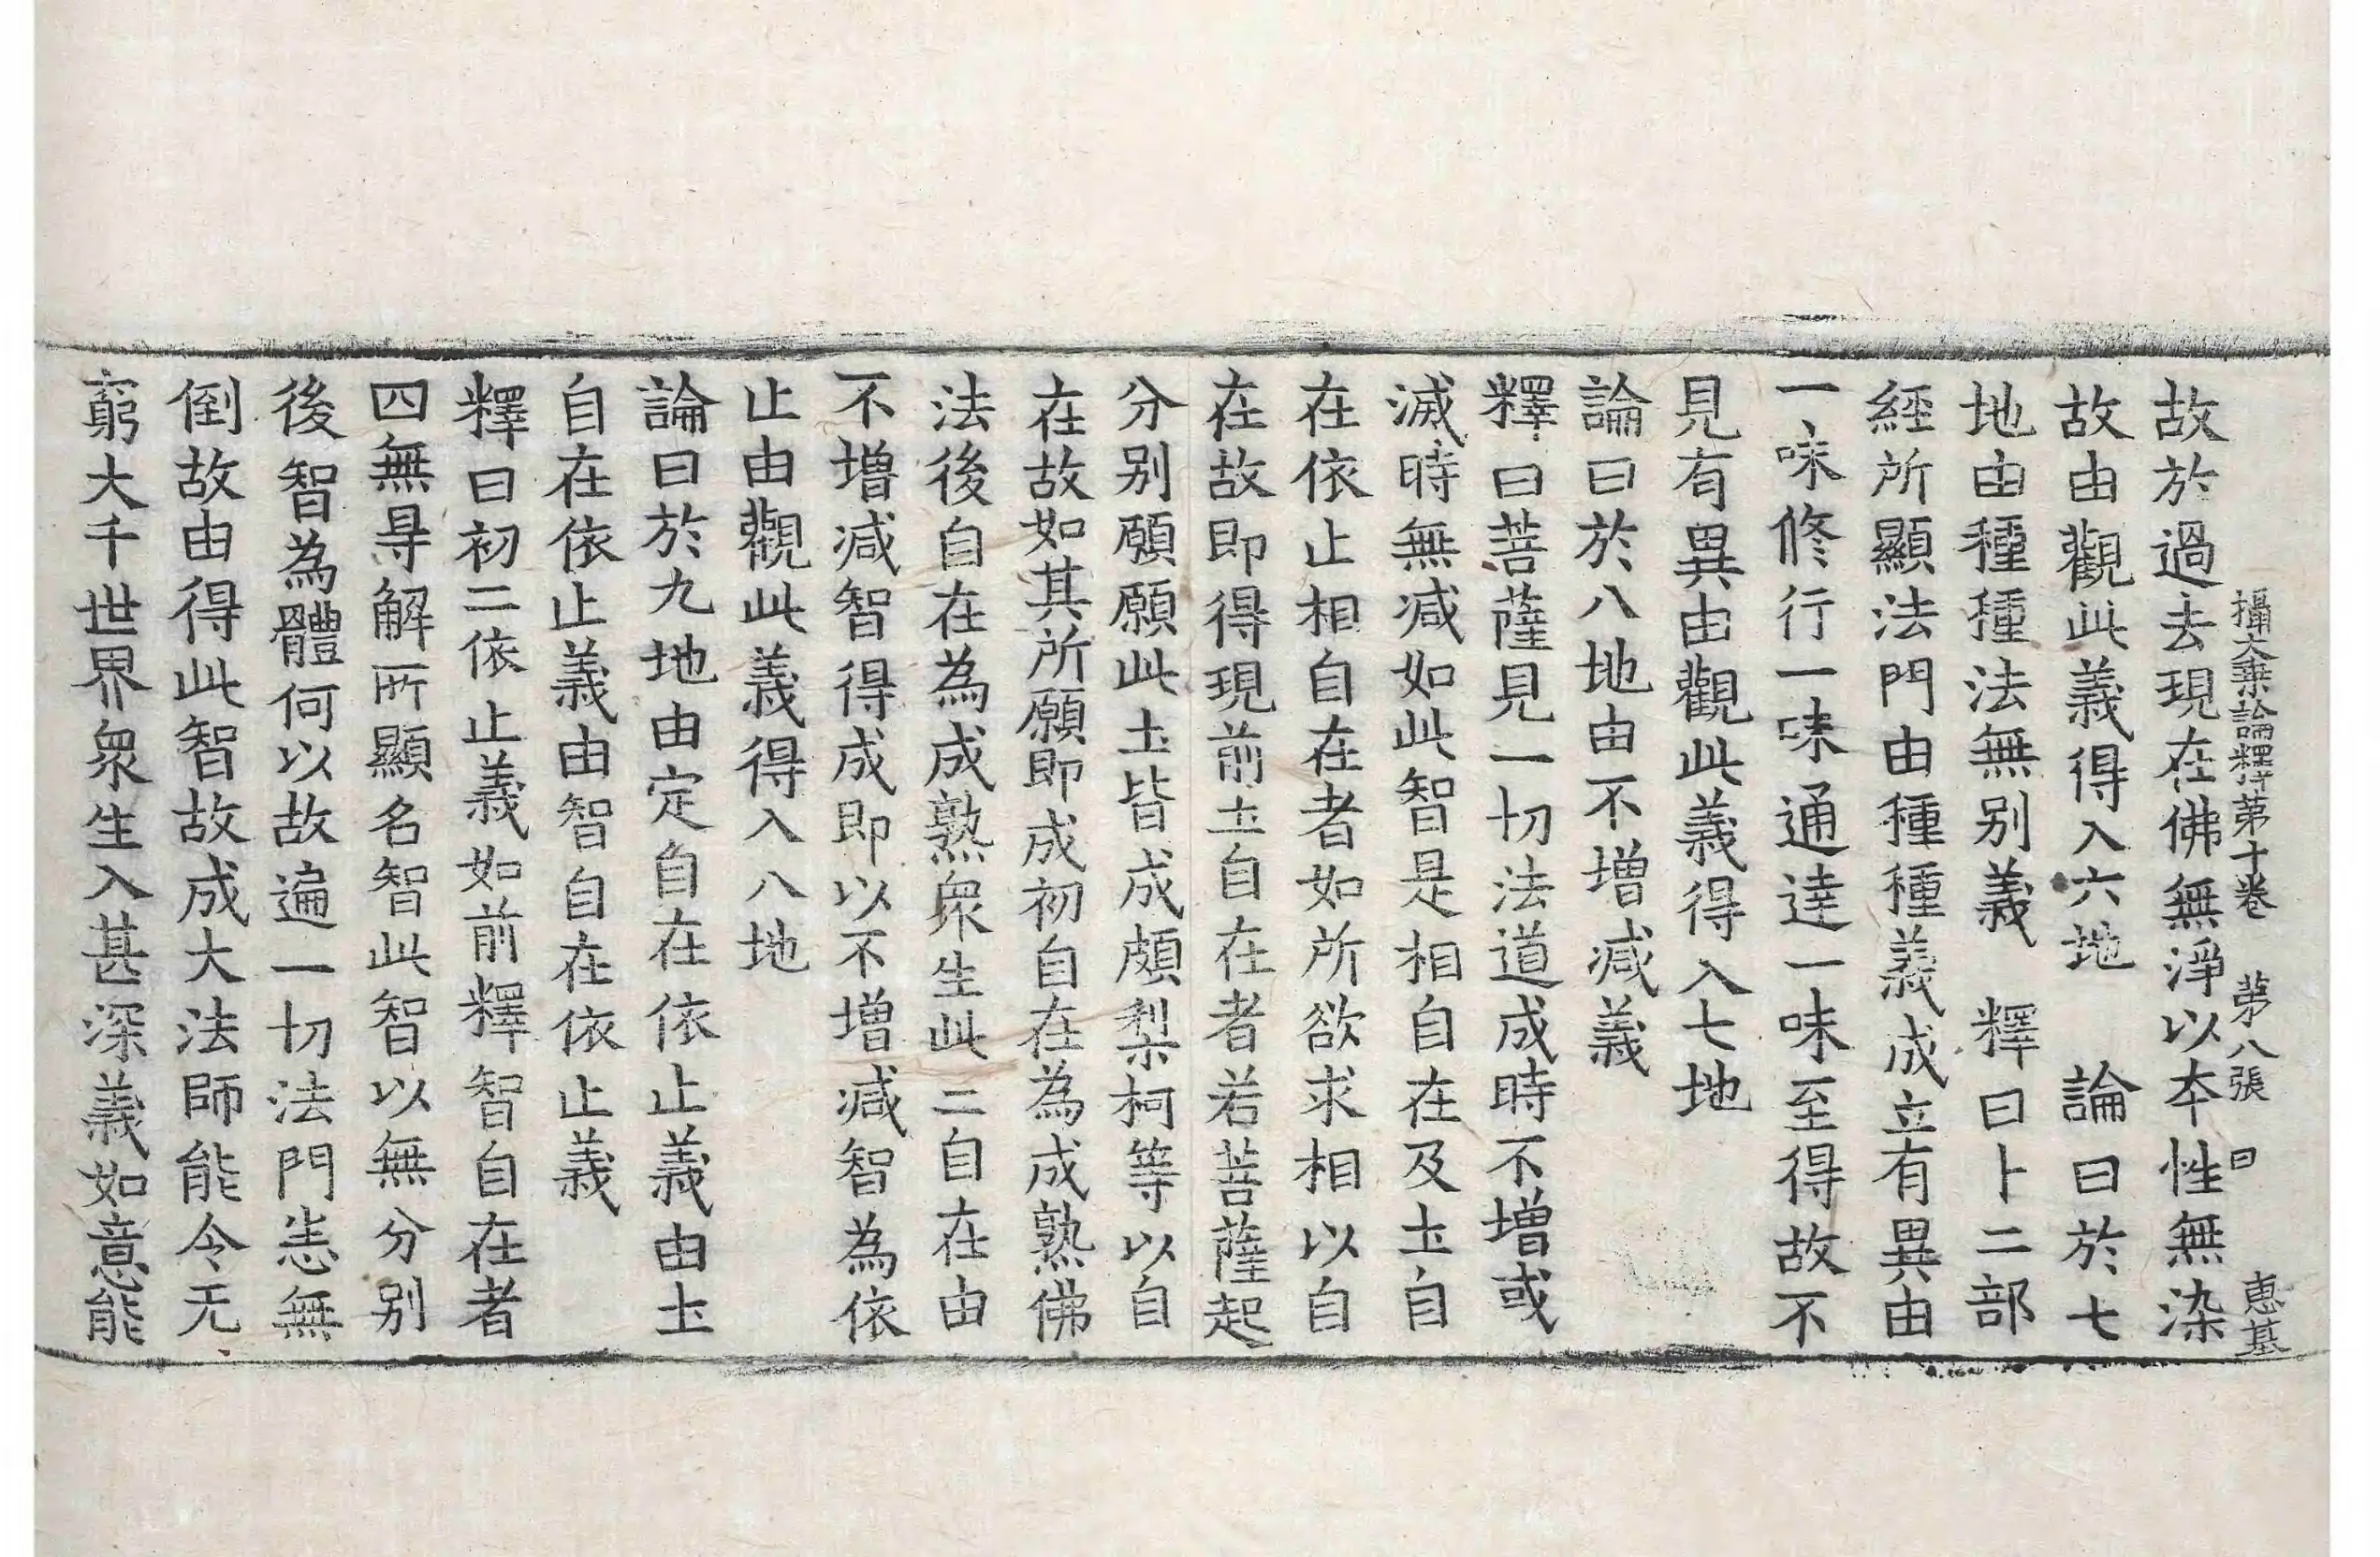 攝大乗論釋苐十卷　苐八張　曰　恵基
故於過去現在佛無淨以夲性無染
故由觀此義得入六地　論曰於七
地由種種法無别義　釋曰卜二部
經所顯法門由種種義成立有異由
一味修行一味通達一味至得故不
見有異由觀此義得入七地
論曰於八地由不增减義
釋曰菩薩見一切法道成時不增或
滅時無减如此智是相自在及圡自
在依止相自在者如所欲求相以自
在故即得現前圡自在者若菩薩起
分别願願此圡皆成頗梨柯等以自
在故如其所願即成初自在為成熟佛
法後自在為成熟衆生此二自在由
不增减智得成即以不增减智為依
止由觀此義得入八地
論曰於九地由定自在依止義由圡
自在依止義由智自在依止義
釋曰初二依止義如前釋智自在者
四無㝵解所顯名智此智以無分别
後智為體何以故遍一切法門恚無
倒故由得此智故成大法師能令无
窮大千世界衆生入甚深義如意能